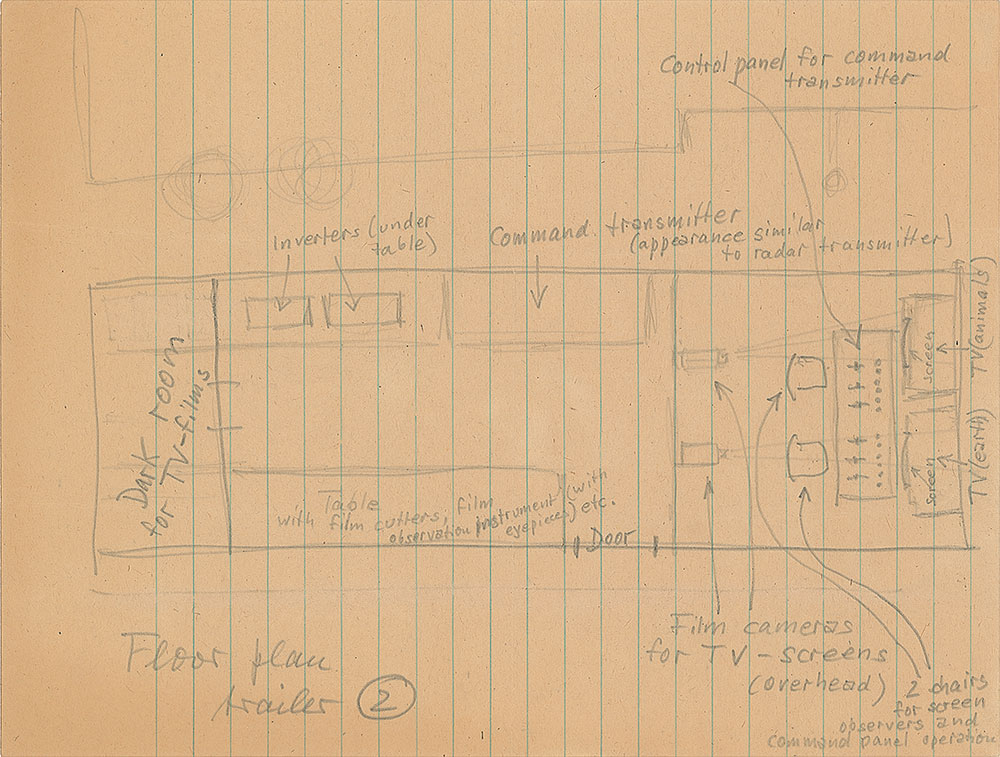 Control panel for command
transmitter
Inverters (under
table)
Command transmitter
(appearance similar
to radar transmitter)
Dark room
for TV-films
screen
TV (animals)
screen
TV (earth)
Table
with film cutters, film
observation instrument (with
eyepieces) etc.
Door
Film cameras
for TV-screens
(overhead)
2 chairs
for screen
observers and
command panel operation
Floor plan
trailer 2